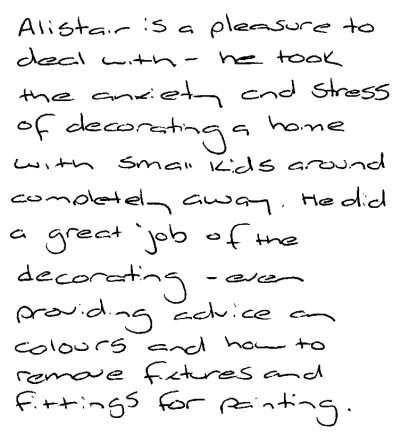 Alistair is a pleasure to
deal with - he took
the anxiety and stress
of decorating a home
with small kids around
completely away. He did
a great job of the
decorating - even
providing advice on
colours and how to
remove fixtures and
fittings for painting.